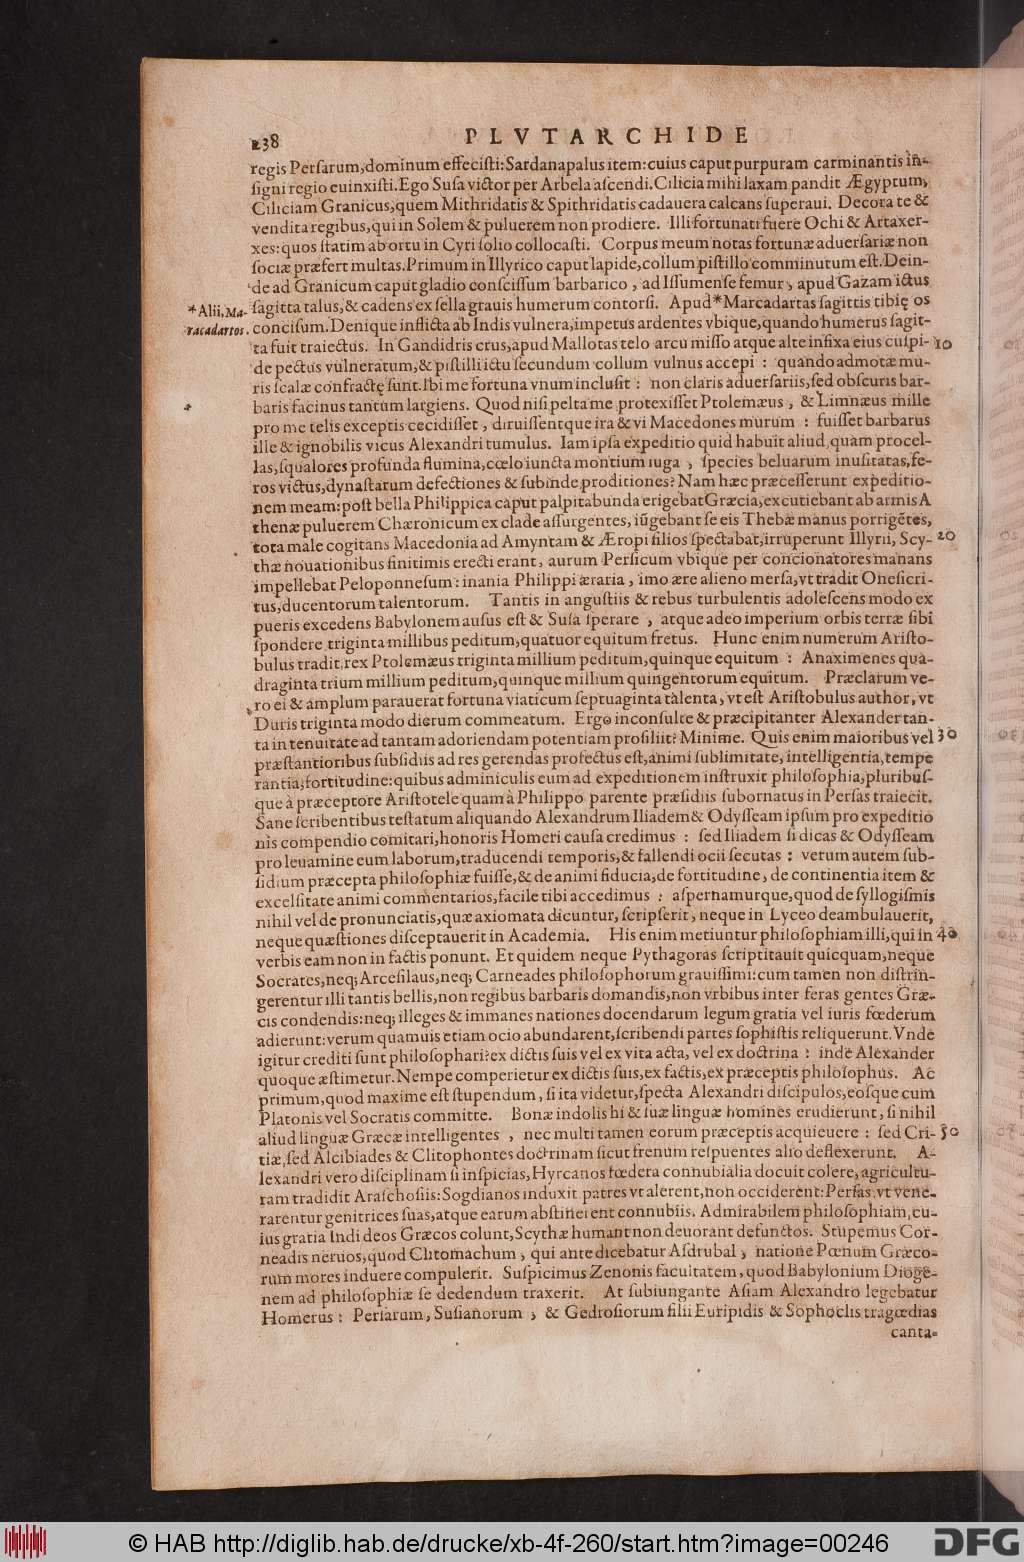 238 PLVTARCHI DE
regis Persarum, dominum effecisti: Sardanapalus item: cuius caput purpuram carminantis in-
signi regio euinxisti. Ego Susa victor per Arbela ascendi. Cilicia mihi laxam pandit Ægyptum,
Ciliciam Granicus, quem Mithridatis & Spithridatis cadauera calcans superaui. Decora te &
vendita regibus, qui in Solem & puluerem non prodiere. Illi fortunati fuere Ochi & Artaxer-
xes: quos statim ab ortu in Cyri solio collocasti. Corpus meum notas fortunæ aduersariæ non
sociæ præfert multas. Primum in Illyrico caput lapide, collum pistillo comminutum est. Dein-
de ad Granicum caput gladio conscissum barbarico, ad Issum ense femur, apud Gazam ictus
sagitta talus, & cadens ex sella grauis humerum contorsi. Apud *Marcadartas sagittis tibię os
*Alii, Ma-
racadartos.
concisum. Denique inflicta ab Indis vulnera, impetus ardentes vbique, quando humerus sagit-
ta fuit traiectus. In Gandidris crus, apud Mallotas telo arcu misso atque alte infixa eius cuspi- 10
de pectus vulneratum, & pistilli ictu secundum collum vulnus accepi: quando admotæ mu-
ris scalæ confractę sunt. Ibi me fortuna vnum inclusit: non claris aduersariis, sed obscuris bar-
baris facinus tantum largiens. Quod nisi pelta me protexisset Ptolemæus, & Limnæus mille
pro me telis exceptis cecidisset, diruissentque ira & vi Macedones murum: fuisset barbarus
ille & ignobilis vicus Alexandri tumulus. Iam ipsa expeditio quid habuit aliud quam procel-
las, squalores profunda flumina, cœlo iuncta montium iuga, species beluarum inusitatas, fe-
ros victus, dynastarum defectiones & subinde proditiones? Nam hæc præcesserunt expeditio-
nem meam: post bella Philippica caput palpitabunda erigebat Græcia, excutiebant ab armis A
thenæ puluerem Chæronicum ex clade assurgentes, iūgebant se eis Thebæ manus porrigẽtes,
tota male cogitans Macedonia ad Amyntam & Æropi filios spectabat, irruperunt Illyrii, Scy- 20
thæ nouationibus finitimis erecti erant, aurum Persicum vbique per concionatores manans
impellebat Peloponnesum: inania Philippi æraria, imo ære alieno mersa, vt tradit Onesicri-
tus, ducentorum talentorum. Tantis in angustiis & rebus turbulentis adolescens modo ex
pueris excedens Babylonem ausus est & Susa sperare, atque adeo imperium orbis terræ sibi
spondere triginta millibus peditum, quatuor equitum fretus. Hunc enim numerum Aristo-
bulus tradit, rex Ptolemæus triginta millium peditum, quinque equitum: Anaximenes qua-
draginta trium millium peditum, quinque millium quingentorum equitum. Præclarum ve-
ro ei & amplum parauerat fortuna viaticum septuaginta talenta, vt est Aristobulus author, vt
Duris triginta modo dierum commeatum. Ergo inconsulte & præcipitanter Alexander tan-
ta in tenuitate ad tantam adoriendam potentiam prosiliit? Minime. Quis enim maioribus vel 30
præstantioribus subsidiis ad res gerendas profectus est, animi sublimitate, intelligentia, tempe
rantia, fortitudine: quibus adminiculis eum ad expeditionem instruxit philosophia, pluribus-
que à præceptore Aristotele quam à Philippo parente præsidiis subornatus in Persas traiecit.
Sane scribentibus testatum aliquando Alexandrum Iliadem & Odysseam ipsum pro expeditio
nis compendio comitari, honoris Homeri causa credimus: sed Iliadem si dicas & Odysseam
pro leuamine eum laborum, traducendi temporis, & fallendi ocii secutas: verum autem sub-
sidium præcepta philosophiæ fuisse, & de animi fiducia, de fortitudine, de continentia item &
excelsitate animi commentarios, facile tibi accedimus: aspernamurque, quod de syllogismis
nihil vel de pronunciatis, quæ axiomata dicuntur, scripserit, neque in Lyceo deambulauerit,
neque quæstiones disceptauerit in Academia. His enim metiuntur philosophiam illi, qui in 40
verbis eam non in factis ponunt. Et quidem neque Pythagoras scriptitauit quicquam, neque
Socrates, neq; Arcesilaus, neq; Carneades philosophorum grauissimi: cum tamen non distrin-
gerentur illi tantis bellis, non regibus barbaris domandis, non vrbibus inter feras gentes Græ-
cis condendis: neq; illeges & immanes nationes docendarum legum gratia vel iuris fœderum
adierunt: verum quamuis etiam ocio abundarent, scribendi partes sophistis reliquerunt. Vnde
igitur crediti sunt philosophari? ex dictis suis vel ex vita acta, vel ex doctrina: inde Alexander
quoque æstimetur. Nempe comperietur ex dictis suis, ex factis, ex præceptis philosophus. Ac
primum, quod maxime est stupendum, si ita videtur, specta Alexandri discipulos, eosque cum
Platonis vel Socratis committe. Bonæ indolis hi & suæ linguæ homines erudierunt, si nihil
aliud linguæ Græcæ intelligentes, nec multi tamen eorum præceptis acquieuere: sed Cri- 50
tiæ, sed Alcibiades & Clitophontes doctrinam sicut frenum respuentes alio deflexerunt. A-
lexandri vero disciplinam si inspicias, Hyrcanos fœdera connubialia docuit colere, agricultu-
ram tradidit Araschosiis: Sogdianos induxit patres vt alerent, non occiderent: Persas, vt vene-
rarentur genitrices suas, atque earum abstinerent connubiis. Admirabilem philosophiam, cu-
ius gratia Indi deos Græcos colunt, Scythæ humant non deuorant defunctos. Stupemus Cor-
neadis neruos, quod Clitomachum, qui ante dicebatur Asdrubal, natione Pœnum Græco-
rum mores induere compulerit. Suspicimus Zenonis facultatem, quod Babylonium Dioge-
nem ad philosophiæ se dedendum traxerit. At subiungante Asiam Alexandro legebatur
Homerus: Persarum, Susianorum, & Gedrosiorum filii Euripidis & Sophoclis tragœdias
canta-
© HAB http://diglib.hab.de/drucke/xb-4f-260/start.htm?image=00246
DFG